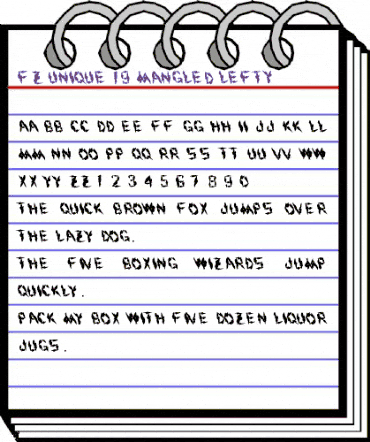 FZ UNIQUE 19 MANGLED LEFTY
AA BB CC DD EE FF GG HH II JJ KK LL
MM NN OO PP QQ RR SS TT UU VV WW
XX YY ZZ 1 2 3 4 5 6 7 8 9 0
THE QUICK BROWN FOX JUMPS OVER
THE LAZY DOG.
THE FIVE BOXING WIZARDS JUMP
QUICKLY.
PACK MY BOX WITH FIVE DOZEN LIQUOR
JUGS.